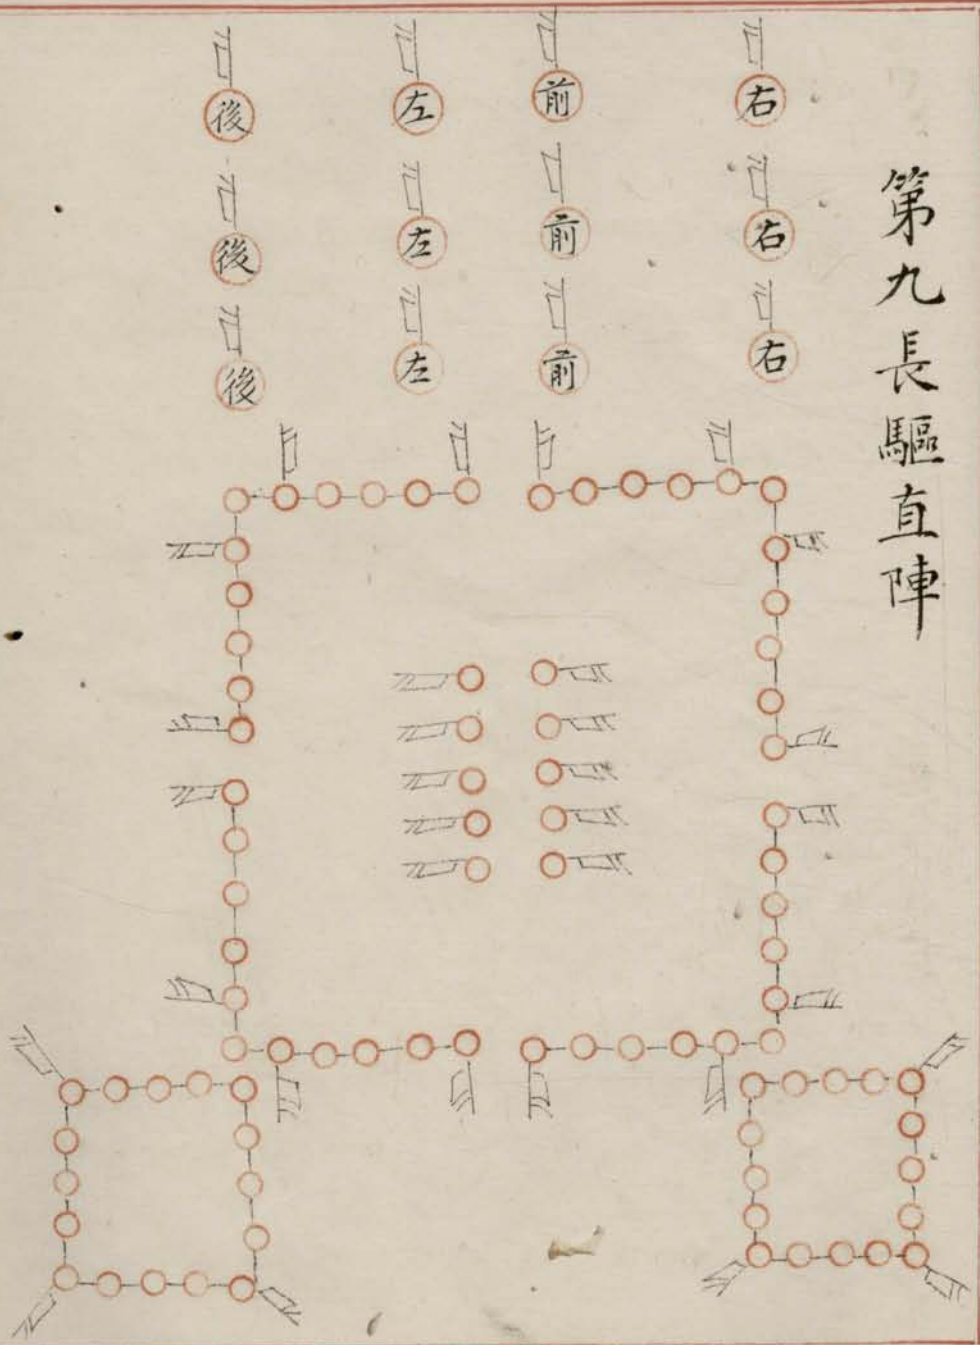 第九長驅直陣
右
右
右
前
前
前
左
左
左
後
後
後